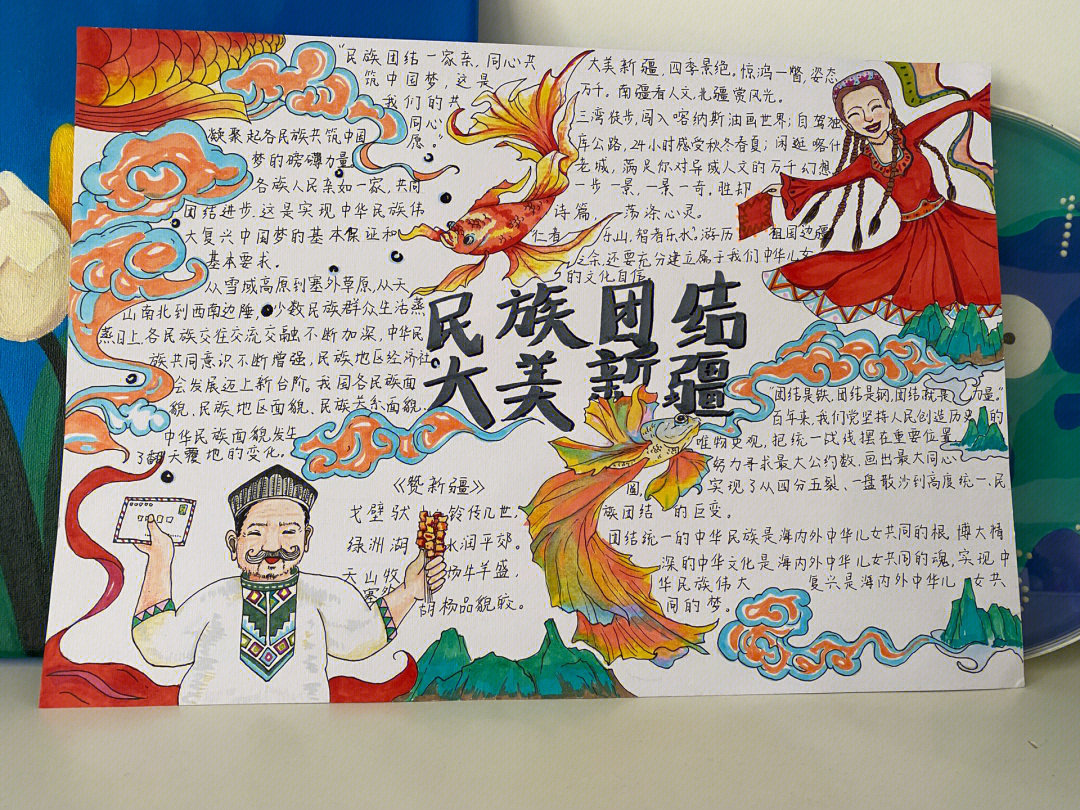 “民族团结一家亲，同心共
筑中国梦，这是
我们的共
同心
愿。”
凝聚起各民族共筑中国
梦的磅礴力量
各族人民亲如一家，共同
团结进步，这是实现中华民族伟
大复兴中国梦的基本保证和
基本要求。
从雪域高原到塞外草原，从天
山南北到西南边陲，少数民族群众生活蒸
蒸日上，各民族交往交流交融不断加深，中华民
族共同意识不断增强，民族地区经济社
会发展迈上新台阶，我国各民族面
貌、民族地区面貌、民族关系面貌、
中华民族面貌发生
了翻天覆地的变化。
大美新疆，四季景绝。惊鸿一瞥，姿态
万千。南疆看人文，北疆赏风光。
三湾徒步，闯入喀纳斯油画世界；自驾独
库公路，24小时感受秋冬春夏；闲逛喀什
老城，满足你对异域人文的万千幻想
一步一景，一景一奇。胜却
诗篇，荡涤心灵。
仁者乐山，智者乐水。游历祖国边疆
之余，还要充分建立属于我们中华儿女
的文化自信
民族团结
大美新疆
“团结是铁，团结是钢，团结就是力量”
百年来，我们党坚持人民创造历史的
唯物史观，把统一战线摆在重要位置，
努力寻求最大公约数、画出最大同心
圆，实现了从四分五裂、一盘散沙到高度统一、民
族团结的巨变。
团结统一的中华民族是海内外中华儿女共同的根，博大精
深的中华文化是海内外中华儿女共同的魂，实现中
华民族伟大复兴是海内外中华儿女共
同的梦。
《赞新疆》
戈壁驮铃传几世，
绿洲湖水润平郊。
天山牧场牛羊盛，
塞外胡杨品貌皎。